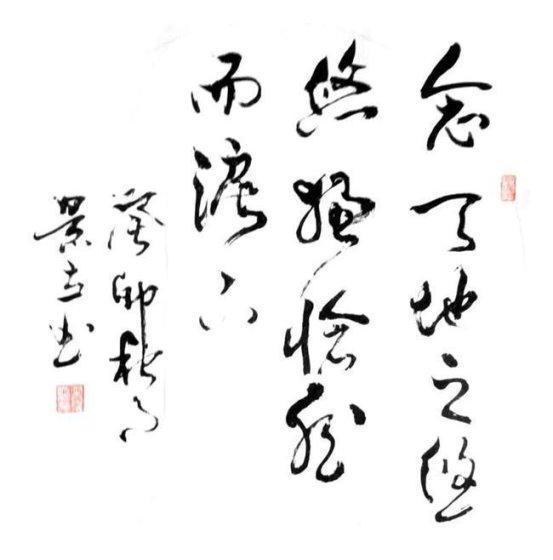 念天地之悠
悠獨愴然
而涕下
癸卯秋月
景立书